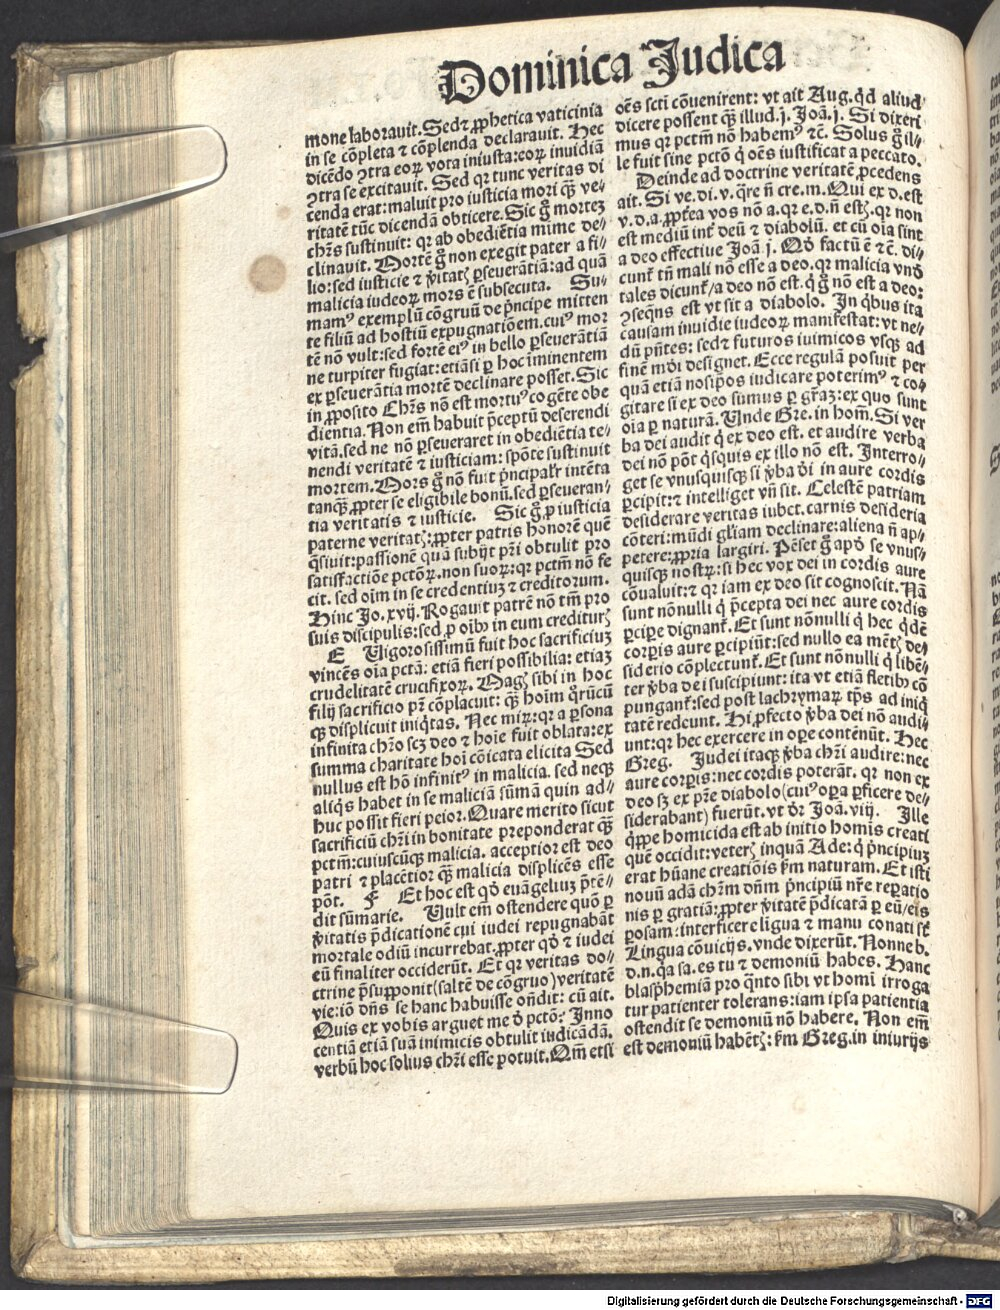 Dominica Judica
mone laborauit. Sedꝫ ꝓphetica vaticinia
in se cōpleta ⁊ cōplenda declarauit. Hec
dicēdo ↄtra eoꝝ vota iniusta: eoꝝ inuidiā
ↄtra se excitauit. Sed qꝛ tunc veritas di
cenda erat: maluit pro iusticia mori qꝫ̄ ve⸗
ritatē tūc dicendā obticere. Sic gͦ morteꝫ
chr̄s sustinuit: qꝛ ab obediētia mime de⸗
clinauit. Mortē gͦ non exegit pater a fi⸗
lio: sed iusticie ⁊ v̓itatꝭ ꝑseuerātiā: ad quā
malicia iudeoꝝ mors ē subsecuta. Su⸗
mamꝰ exemplū cōgruū de pͥncipe mitten
te filiū ad hostiū expugnatiōem. cuiꝰ mor
tē nō vult: sed fortē eiꝰ in bello ꝑseuerātiā
ne turpiter fugiat: etiāsi ꝑ hoc īminentem
ex ꝑseuerātia mortē declinare posset. Sic
in ꝓposito Chr̄s nō est mortuꝰ cogēte obe
dientia. Non em̄ habuit p̄ceptū deserendi
vitā. sed ne nō ꝑseueraret in obediētia te⸗
nendi veritatē ⁊ iusticiam: spōte sustinuit
mortem. Mors gͦ nō fuit pͥncipalr̄ intēta
tanqꝫ̄ ꝓpter se eligibile bonū. sed ꝑseueran⸗
tia veritatis ⁊ iusticie. Sic gͦ ꝓ iusticia
paterne veritatꝭ: ꝓpter patris honorē quē
q̄siuit: passionē quā subijt pr̄i obtulit pro
satisfactiōe pctōꝝ. non suoꝝ: qꝛ pctm̄ nō fe
cit. sed oīm in se credentiuꝫ ⁊ creditorum.
Hinc Jo. xvij. Rogauit patrē nō tm̄ pro
suis discipulis: sed ꝓ oībꝰ in eum credituꝝ
E Uigorosissimū fuit hoc sacrificiuꝫ
vincēs oīa pctā: etiā fieri possibilia: etiaꝫ
crudelitatē crucifixoꝝ. Magꝭ sibi in hoc
filij sacrificio pr̄ cōplacuit: qꝫ̄ hoīm qͦrūcū
qꝫ displicuit iniqͥtas. Nec miꝝ: qꝛ a ꝑsona
infinita chr̄o scꝫ deo ⁊ hoīe fuit oblata: ex
summa charitate hoī cōīcata elicita Sed
nullus est hō infinitꝰ in malicia. sed neqꝫ
aliqͥs habet in se maliciā sūmā quin ad⸗
huc possit fieri peior. Quare merito sicut
sacrificiū chr̄i in bonitate preponderat qꝫ̄
pctm̄: cuiuscūqꝫ malicia. acceptior est deo
patri ⁊ placētior qꝫ̄ malicia displicēs esse
pōt. F Et hoc est qd̓ euāgeliuꝫ p̄tē⸗
dit sūmarie. Uult em̄ ostendere quō ꝑ
v̓itatis p̄dicationē cui iudei repugnabāt
mortale odiū incurrebat. ꝓpter qd̓ ⁊ iudei
eū finaliter occiderūt. Et qꝛ veritas do⸗
ctrine p̄supponit (saltē de cōgruo) veritatē
vie: iō dn̄s se hanc habuisse on̄dit: cū ait.
Quis ex vobis arguet me d̓ pctō: Inno
centiā etiā suā inimicis obtulit iudicādā.
verbū hoc solius chr̄i esse potuit. Qm̄ etsi
oēs scti cōuenirent: vt ait Aug. qd̓ aliud
dicere possent qꝫ̄ illud. j. Joā. j. Si dixeri
mus qꝛ pctm̄ nō habemꝰ ⁊c̄. Solus gͦ il⸗
le fuit sine pctō qͥ oēs iustificat a peccato.
Deinde ad doctrine veritatē ꝓcedens
ait. Si ve. di. v. q̄re n̄ cre. m. Qui ex d. est
v. d. a. ꝓpt̄ea vos nō a. qꝛ e. d. n̄ estꝭ. qꝛ non
est mediū int̓ deū ⁊ diabolū. et cū oīa sint
a deo effectiue Joā j. Qd̓ factū ē ⁊c̄. di⸗
cunt̓ tn̄ mali nō esse a deo. qꝛ malicia vnd̓
tales dicunt̓/a deo nō est. qͥ gͦ nō est a deo:
ↄseqn̄s est vt sit a diabolo. In qͥbus ita
causam inuidie iudeoꝝ manifestat: vt ne⸗
dū pn̄tes: sedꝫ futuros iuimicos vsqꝫ ad
finē mūdi designet. Ecce regulā posuit per
quā etiā nosip̄os iudicare poterimꝰ ⁊ co⸗
gitare si ex deo sumus ꝑ gr̄aꝫ: ex quo sunt
oīa ꝑ naturā. Unde Gre. in hom̄. Si ver
ba dei audit qͥ ex deo est. et audire verba
dei nō pōt qͥsquis ex illo nō est. Interro⸗
get se vnusquisqꝫ si v̓ba d̓i in aure cordis
ꝑcipit: ⁊ intelliget vn̄ sit. Celestē patriam
desiderare veritas iubet. carnis desideria
cōteri: mūdi gl̓iam declinare: aliena n̄ ap⸗
petere: ꝓpria largiri. Pēset gͦ apd̓ se vnus⸗
quisqꝫ nostꝝ: si hec vox dei in cordis aure
cōualuit: ⁊ qꝛ iam ex deo sit cognoscit. Nā
sunt nōnulli qͥ p̄cepta dei nec aure cordis
ꝑcipe dignant̓. Et sunt nōnulli qͥ hec qͥdē
corꝑis aure ꝑcipiūt: sed nullo ea mētꝭ de⸗
siderio cōplectunt̓. Et sunt nōnulli qͥ libē⸗
ter v̓ba dei suscipiunt: ita vt etiā fletibꝰ cō
pungant̓: sed post lachrymaꝝ tp̄s ad iniqͥ
tatē redeunt. Hi ꝓfecto v̓ba dei nō audi⸗
unt: qꝛ hec exercere in oꝑe contēnūt. Hec
Greg. Judei itaqꝫ v̓ba chr̄i audire: nec
aure corꝑis: nec cordis poterāt. qꝛ non ex
deo sꝫ ex pr̄e diabolo (cuiꝰ oꝑa ꝑficere de⸗
siderabant) fuerūt. vt dr̄ Joā. viij. Ille
qͥppe homicida est ab initio homīs creati
quē occidit: veterꝭ inquā Ade: qͥ pͥncipiuꝫ
erat hūane creatiōis ẜm naturam. Et isti
nouū adā chr̄m dn̄m pͥncipiū nr̄e reꝑatio
nis ꝑ gratiā: ꝓpter v̓itatē p̄dicatā ꝑ eū/eis
ꝑosam: interficere ligua ⁊ manu conati st̄
Lingua cōuicijs. vnde dixerūt. Nonne b.
d. n. qꝛ sa. es tu ⁊ demoniū habes. Hanc
blasphemiā pro qͣnto sibi vt homī irroga
tur patienter tolerans: iam ipsa patientia
ostendit se demoniū nō habere. Non em̄
est demoniū habētꝭ: ẜm Greg. in iniurijs
Digitalisierung gefördert durch die Deutsche Forschungsgemeinschaft - DFG